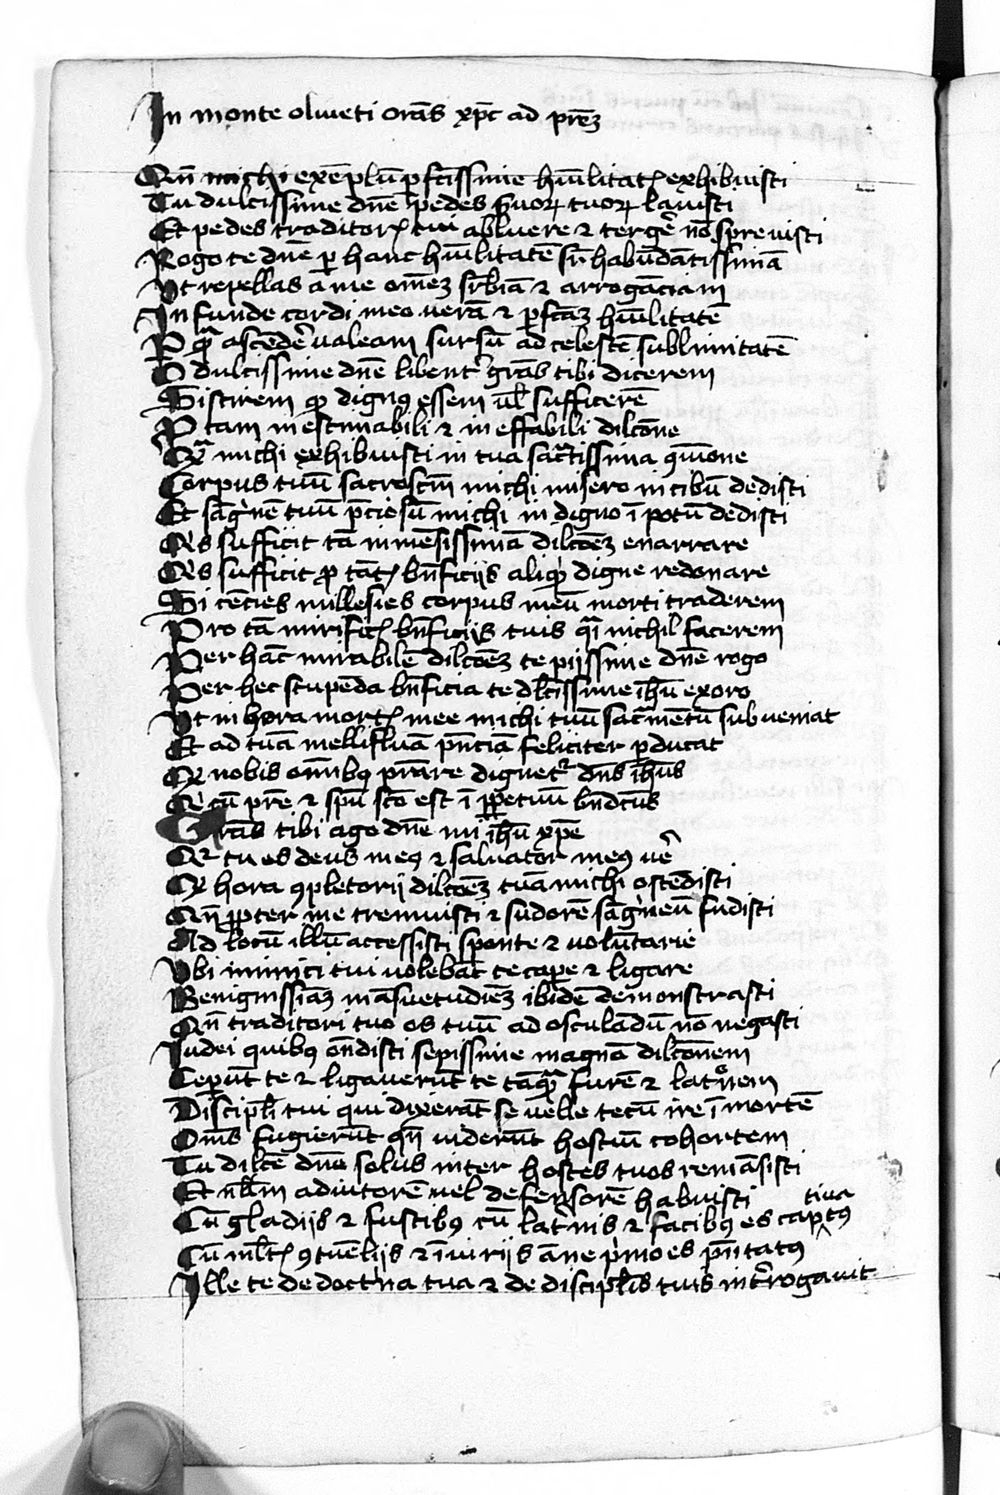 In monte oliueti orās xp̄c ad prēz
Qm̄ michi exēplū ꝑfctissime hūilitatꝭ exhibuisti
Tu dulcissime dn̄e pedes ẜuoꝝ tuoꝝ lauisti
Et pedes traditorꝭ tui abluere ⁊ tergẽ nō spreuisti
Rogo te dn̄e ꝑ hanc hūilitatē sr̄ habūdātissimā
Vt repellas a me om̄ez suꝑbiā ⁊ arrogāciam
In funde cordi meo uerā ⁊ ꝑfctāz hūilitatē
P quā ascēdẽ ualeam sursū ad celestē sublimitatē
O dulcissime dn̄e libentᵉ grās tibi dicerem
Si scirem ꝙ dignꝰ essem ul̄ sufficerē
P tam inestimabili ⁊ in effabili dilcōne
Qᵃ michi exhibuisti in tua sacᵃtissima ꝯmūione
Corpus tuū sacroscm̄ michi misero in cibū dedisti
Et sāgⁱnē tuū p̄ciosū michi indigno ī potū dedisti
Qⁱs sufficit tā inmēsissimā dilcōez enarrare
Qⁱs sufficit ꝓ tātꝭ bn̄ficijs aliqⁱd digne redonare
Si cēcies millesies corpus meū morti traderem
Pro tā mirificꝭ bn̄ficijs tuis qⁱ nichil facerem
Per hāc mirabilē dilcōez te pijssime dn̄e rogo
Per hec stupēda bn̄ficia te dl̄cissime ih̄u exoro
Vt in hora mortꝭ mee michi tuū sacᵃmētū sub ueniat
Et ad tuā mellifluā pn̄ciā feliciter ꝑducat
Qᵈ nobis om̄ibꝰ prāre dignetᵘʳ dn̄s ih̄us
Qⁱ cū prē ⁊ spū sc̄o est ī ꝑpetuū bn̄dctūs
Grās tibi ago dn̄e mi ih̄u xp̄e
Qꝛ tu es deus meꝰ ⁊ saluator meꝰ uẽ
Qⁱ hora ꝯpletorij dilcōez tuā michi ostēdisti
Qn̄ ꝓpter me tremuisti ⁊ sudorē sāgⁱneū fudisti
Ad locū illū accessisti sponte ⁊ uolūtarie
Vbi inimici tui uolebāt te caꝑe ⁊ ligare
Benignissiāz māsuetudīez ibidē demonstrasti
Qn̄ traditori tuo os tuū ad osculādū nō negasti
Iudei quibꝰ on̄disti sepissime magnā dilcōnem
Ceperūt te ⁊ ligauerūt te tāqᵃ furē ⁊ latᵒnem
Discipl̄i tui qui dixerāt se uelle tecū ire ī mortē
Om̄s fugierūt qn̄ uiderūt hostiū cohortem
Tu dilcē dn̄e solus inter hostes tuos remāsisti
Et nl̄lm adiutorē uel defensorē habuisti
tiua
Cū gladijs ⁊ fustibꝰ cū latⁱnis ⁊ facibꝰ es captꝰ
Cū ml̄tꝭ ꝯtuēlijs ⁊ īiurijs āne pⁱmo es pn̄tatꝰ
Ille te de doctⁱna tua ⁊ de discipl̄is tuis intᵉrogauit